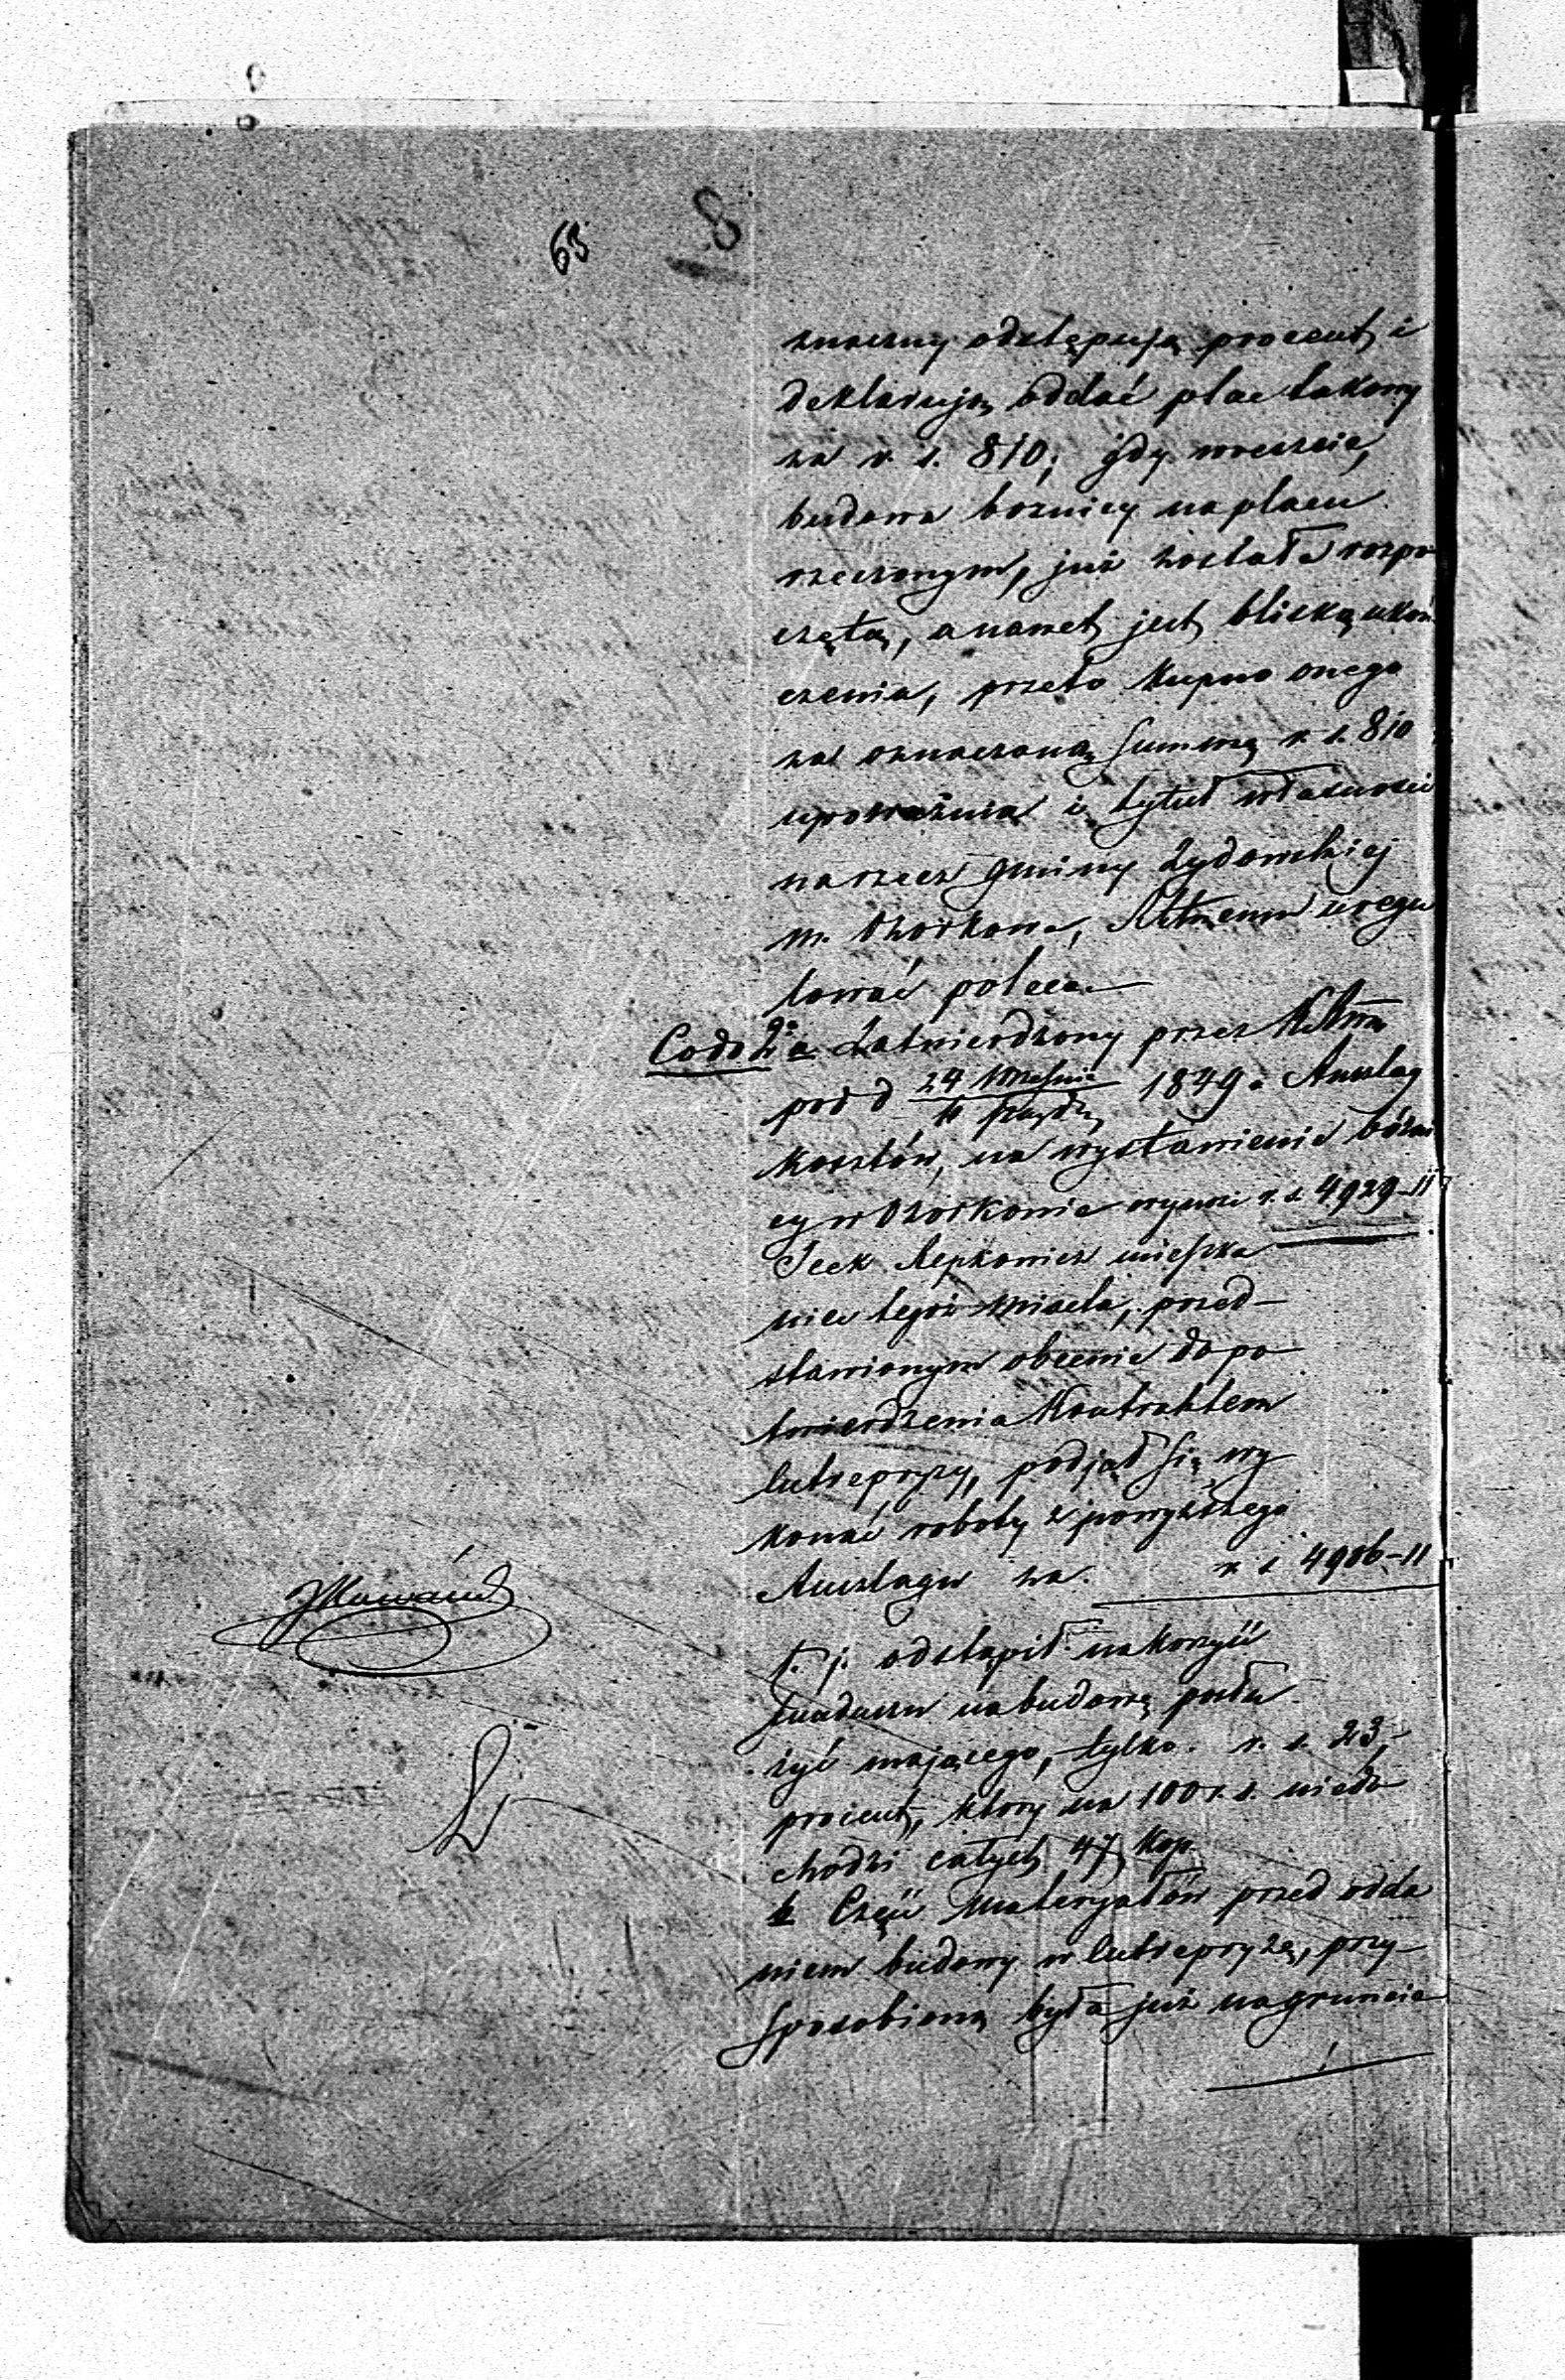 65 8
znaczny odstępują procent, i
deklarują oddać plac takowy
za r. s. 810; gdy wreszcie,
budowa bożnicy na placu
rzeczonym, już została rozpo-
czętą, a nawet jest bliską ukoń
czenia, przeto kupno onego
za oznaczoną Summę r. s. 810
upoważnia i tytuł własności
na rzecz gminy Żydowskiej
m. Ozorkowa, uregu
lować poleca.—
Co do 2o a Zatwierdzony przez
pod d 24 Września 1849 r. Anszlag
kosztów, na wystawienie bóżni
cy w Ozorkowie wynosi r. s. 4929–11
Icek Lepkowicz mieszka
niec tegoż miasta, przed-
stawionym obecnie do po
twierdzenia Kontraktem
Entrepryzy, podjął się wy
konać roboty z powyższego
Anszlagu za. r. s. 4906–11
t. j. odstąpił na korzyść
funduszu na budowę posłu
żyć mającego, tylko. r. s. 23,
procent, który na 100 r. s. niedo
chodzi całych 47 Kop.
b Część Materyałów przed odda
niem budowy w Entrepryzę, przy-
sposobioną była już na gruncie